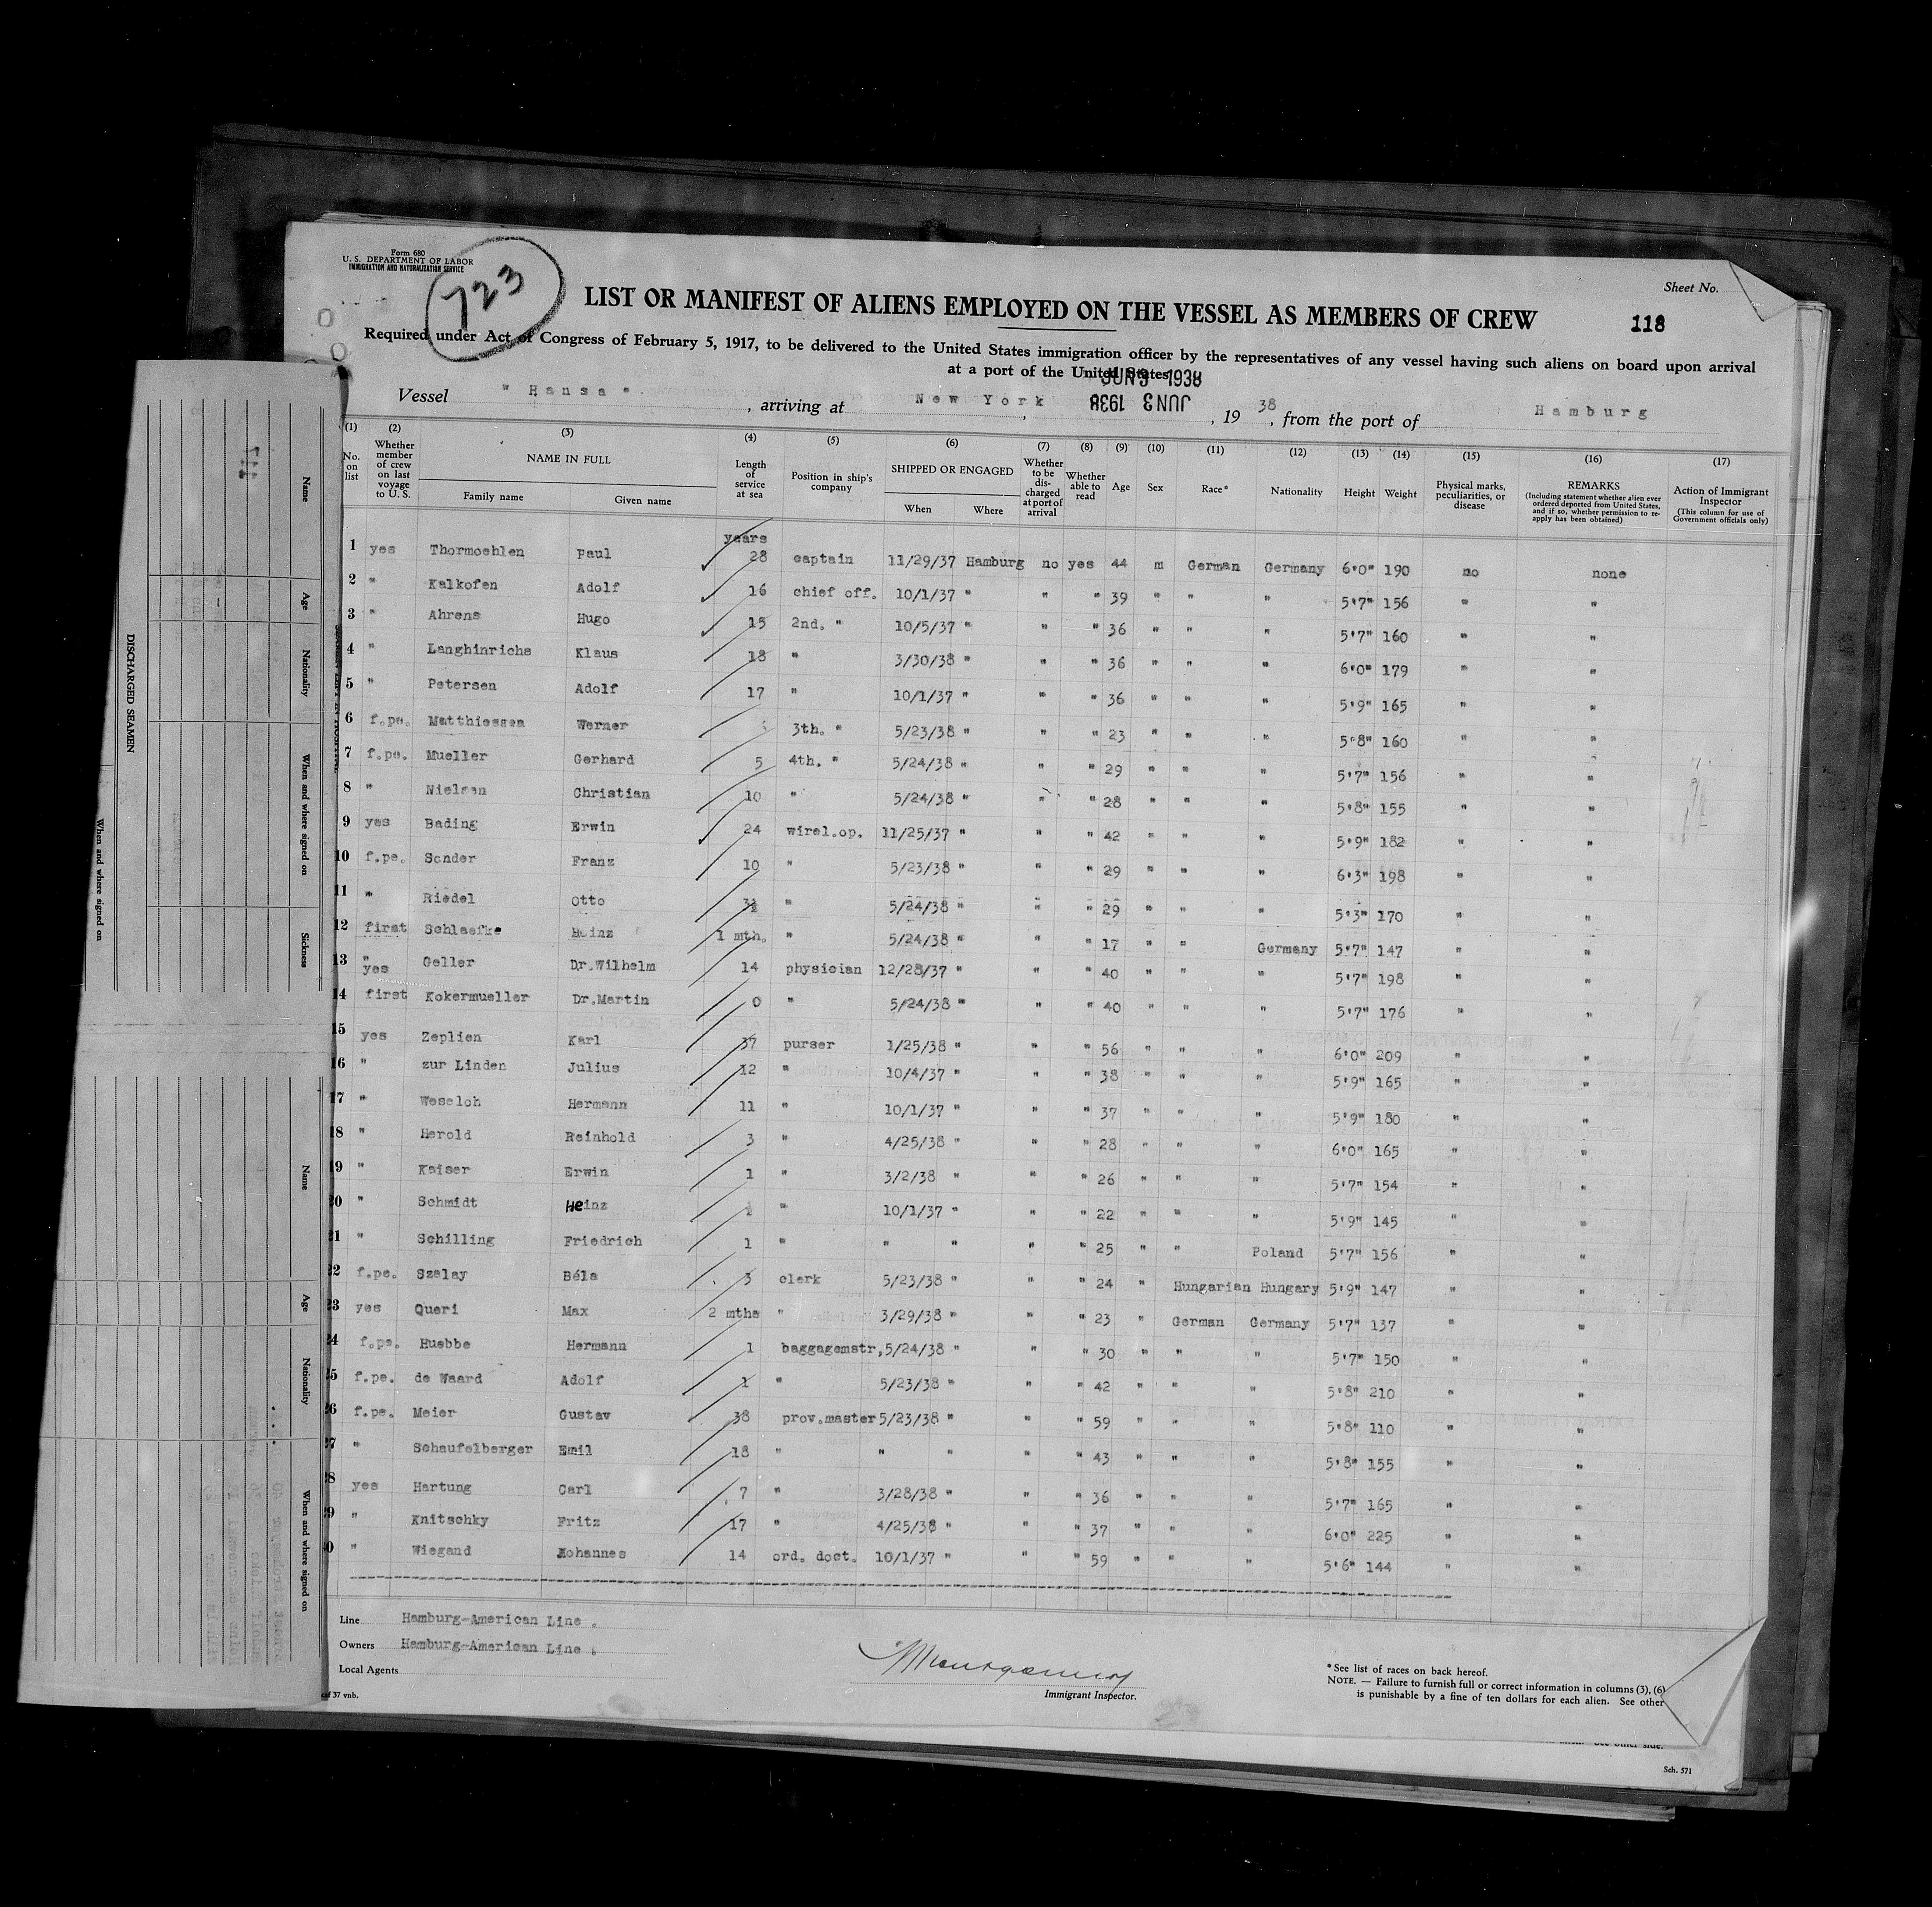 Form 680
U. S. DEPARTMENT OF LABOR
IMMIGRATION AND NATURALIZATION SERVICE
723
Sheet No.
LIST OR MANIFEST OF ALIENS EMPLOYED ON THE VESSEL AS MEMBERS OF CREW
118
Required under Act of Congress of February 5, 1917, to be delivered to the United States immigration officer by the representatives of any vessel having such aliens on board upon arrival
at a port of the United States
JUN 3 1938
Vessel " Hansa " , arriving at New York , JUN 3 1938 , 19 38 , from the port of Hamburg
(1) (2) (3) (4) (5) (6) (7) (8) (9) (10) (11) (12) (13) (14) (15) (16) (17)
No. on list
Whether member of crew on last voyage to U. S.
NAME IN FULL
Family name
Given name
Length of service at sea
Position in ship's company
SHIPPED OR ENGAGED
When
Where
Whether to be discharged at port of arrival
Whether able to read
Age
Sex
Race*
Nationality
Height
Weight
Physical marks, peculiarities, or disease
REMARKS
(Including statement whether alien ever ordered deported from United States, and if so, whether permission to reapply has been obtained)
Action of Immigrant Inspector
(This column for use of Government officials only)
years
1 yes Thormoehlen Paul 28 captain 11/29/37 Hamburg no yes 44 m German Germany 6'0" 190 no none
2 " Kalkofen Adolf 16 chief off. 10/1/37 " " " 39 " " " 5'7" 156 " "
3 " Ahrens Hugo 15 2nd. " 10/5/37 " " " 36 " " " 5'7" 160 " "
4 " Langhinrichs Klaus 18 " 3/30/38 " " " 36 " " " 6'0" 179 " "
5 " Petersen Adolf 17 " 10/1/37 " " " 36 " " " 5'9" 165 " "
6 f.pe. Matthiessen Werner 3th. " 5/23/38 " " " 23 " " " 5'8" 160 " "
7 f.pe. Mueller Gerhard 5 4th. " 5/24/38 " " " 29 " " " 5'7" 156 " "
8 " Nielsen Christian 10 " 5/24/38 " " " 28 " " " 5'8" 155 " "
9 yes Bading Erwin 24 wirel.op. 11/25/37 " " " 42 " " " 5'9" 182 " "
10 f.pe. Sonder Franz 10 " 5/23/38 " " " 29 " " " 6'3" 198 " "
11 " Riedel Otto 3½ " 5/24/38 " " " 29 " " " 5'3" 170 " "
12 first Schlaefke Heinz 1 mth. " 5/24/38 " " " 17 " " Germany 5'7" 147 " "
13 " yes Geller Dr.Wilhelm 14 physician 12/28/37 " " " 40 " " " 5'7" 198 " "
14 first Kokermueller Dr.Martin 0 " 5/24/38 " " " 40 " " " 5'7" 176 " "
15 yes Zeplien Karl 37 purser 1/25/38 " " " 56 " " " 6'0" 209 " "
16 " zur Linden Julius 12 " 10/4/37 " " " 38 " " " 5'9" 165 " "
17 " Weseloh Hermann 11 " 10/1/37 " " " 37 " " " 5'9" 180 " "
18 " Herold Reinhold 3 " 4/25/38 " " " 28 " " " 6'0" 165 " "
19 " Kaiser Erwin 1 " 3/2/38 " " " 26 " " " 5'7" 154 " "
20 " Schmidt Heinz " 10/1/37 " " " 22 " " " 5'9" 145 " "
21 " Schilling Friedrich 1 " " " " " 25 " " Poland 5'7" 156 " "
22 f.pe. Szalay Béla 3 clerk 5/23/38 " " " 24 " Hungarian Hungary 5'9" 147 " "
23 yes Queri Max 2 mths " 3/29/38 " " " 23 " German Germany 5'7" 137 " "
24 f.pe. Huebbe Hermann 1 baggagemstr, 5/24/38 " " " 30 " " " 5'7" 150 " "
25 f.pe. de Waard Adolf 1 " 5/23/38 " " " 42 " " " 5'8" 210 " "
26 f.pe. Meier Gustav 38 prov.master 5/23/38 " " " 59 " " " 5'8" 110 " "
27 " Schaufelberger Emil 18 " " " " " 43 " " " 5'8" 155 " "
28 yes Hartung Carl 7 " 3/28/38 " " " 36 " " " 5'7" 165 " "
29 " Knitschky Fritz 17 " 4/25/38 " " " 37 " " " 6'0" 225 " "
30 " Wiegand Johannes 14 ord. doct. 10/1/37 " " " 59 " " " 5'6" 144 " "
Line Hamburg-American Line .
Owners Hamburg-American Line .
Local Agents
Montgomery
Immigrant Inspector.
*See list of races on back hereof.
NOTE. — Failure to furnish full or correct information in columns (3), (6)
is punishable by a fine of ten dollars for each alien. See other
37 vnb.
See other side.
Sch. 571
117
DISCHARGED SEAMEN
Name
Age
Nationality
When and where signed on
Sickness
When and where signed on
Name
Age
Nationality
When and where signed on